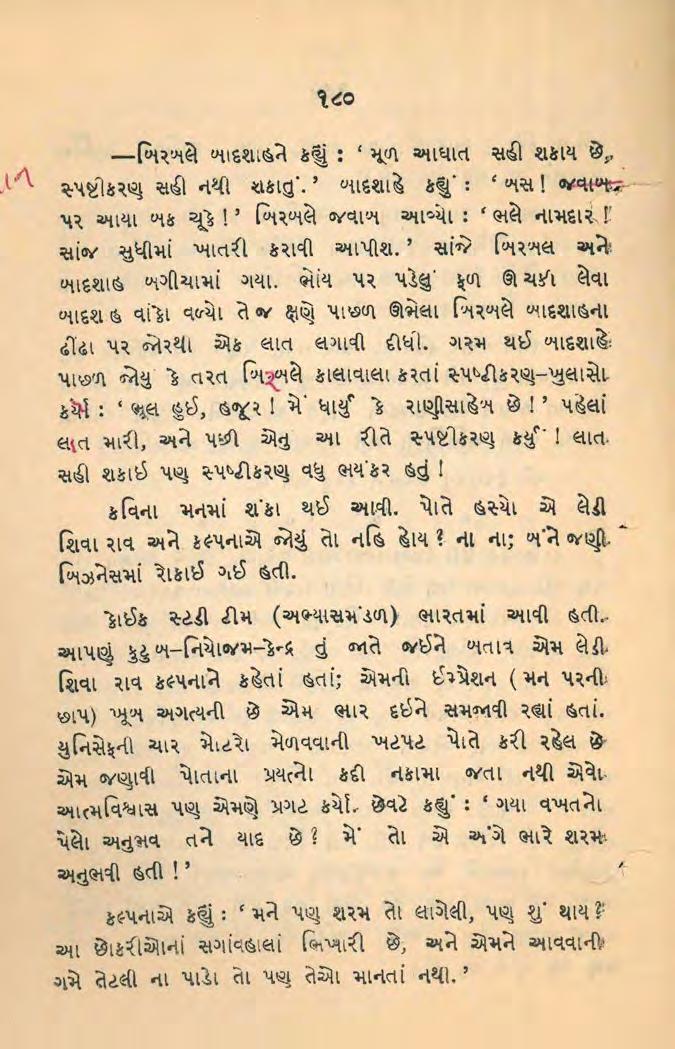 ૧૮૦
—બિરબલે બાદશાહને કહ્યું : ‘ મૂળ આઘાત સહી શકાય છે,
સ્પષ્ટીકરણ સહી નથી શકાતું.’ બાદશાહે કહ્યું : ‘ બસ ! જવાબ
પર આયા બક ચૂકે !’ બિરબલે જવાબ આવ્યો : ‘ ભલે નામદાર !
સાંજ સુધીમાં ખાતરી કરાવી આપીશ.’ સાંજે બિરબલ અને
બાદશાહ બગીચામાં ગયા. ભોંય પર પડેલું ફળ ઊચકી લેવા
બાદશાહ વાંકા વળ્યો તેજ ક્ષણે પાછળ ઊભેલા બિરબલે બાદશાહના
ઢીંઢા પર જોરથી એક લાત લગાવી દીધી. ગરમ થઈ બાદશાહે
પાછળ જોયુ કે તરત બિરબલે કાલાવાલા કરતાં સ્પષ્ટીકરણ-ખુલાસો
કર્યો : ‘ ભૂલ હુઈ, હજૂર ! મેં ધાર્યું કે રાણીસાહેબ છે !’ પહેલાં
લાત મારી, અને પછી એનુ આ રીતે સ્પષ્ટીકરણ કર્યું ! લાત
સહી શકાઈ પણ સ્પષ્ટીકરણ વધુ ભયંકર હતું !
કવિના મનમાં શંકા થઈ આવી. પોતે હસ્યો એ લેડી
શિવા રાવ અને કલ્પનાએ જોયું તો નહિ હોય ? ના ના; બંને જણી
બિઝનેસમાં રોકાઈ ગઈ હતી.
કોઈક સ્ટડી ટીમ (અભ્યાસમંડળ) ભારતમાં આવી હતી.
આપણું કુટુંબ-નિયોજમ-કેન્દ્ર તું જાતે જઈને બતાવ એમ લેડી
શિવા રાવ કલ્પનાને કહેતાં હતાં; એમની ઈમ્પ્રેશન ( મન પરની
છાપ) ખૂબ અગત્યની છે એમ ભાર દઈને સમજાવી રહ્યાં હતાં.
યુનિસેફની ચાર મોટરો મેળવવાની ખટપટ પોતે કરી રહેલ છે
એમ જણાવી પોતાના પ્રયત્નો કદી નકામા જતા નથી એવો
આત્મવિશ્વાસ પણ એમણે પ્રગટ કર્યો. છેવટે કહ્યું : ‘ ગયા વખતનો
પેલો અનુભવ તને યાદ છે ? મેં તો એ અંગે ભારે શરમ
અનુભવી હતી !’
કલ્પનાએ કહ્યું : ‘ મને પણ શરમ તો લાગેલી, પણ શું થાય ?
આ છોકરીઓનાં સગાંવહાલાં ભિખારી છે, અને એમને આવવાની
ગમે તેટલી ના પાડો તો પણ તેઓ માનતાં નથી.’